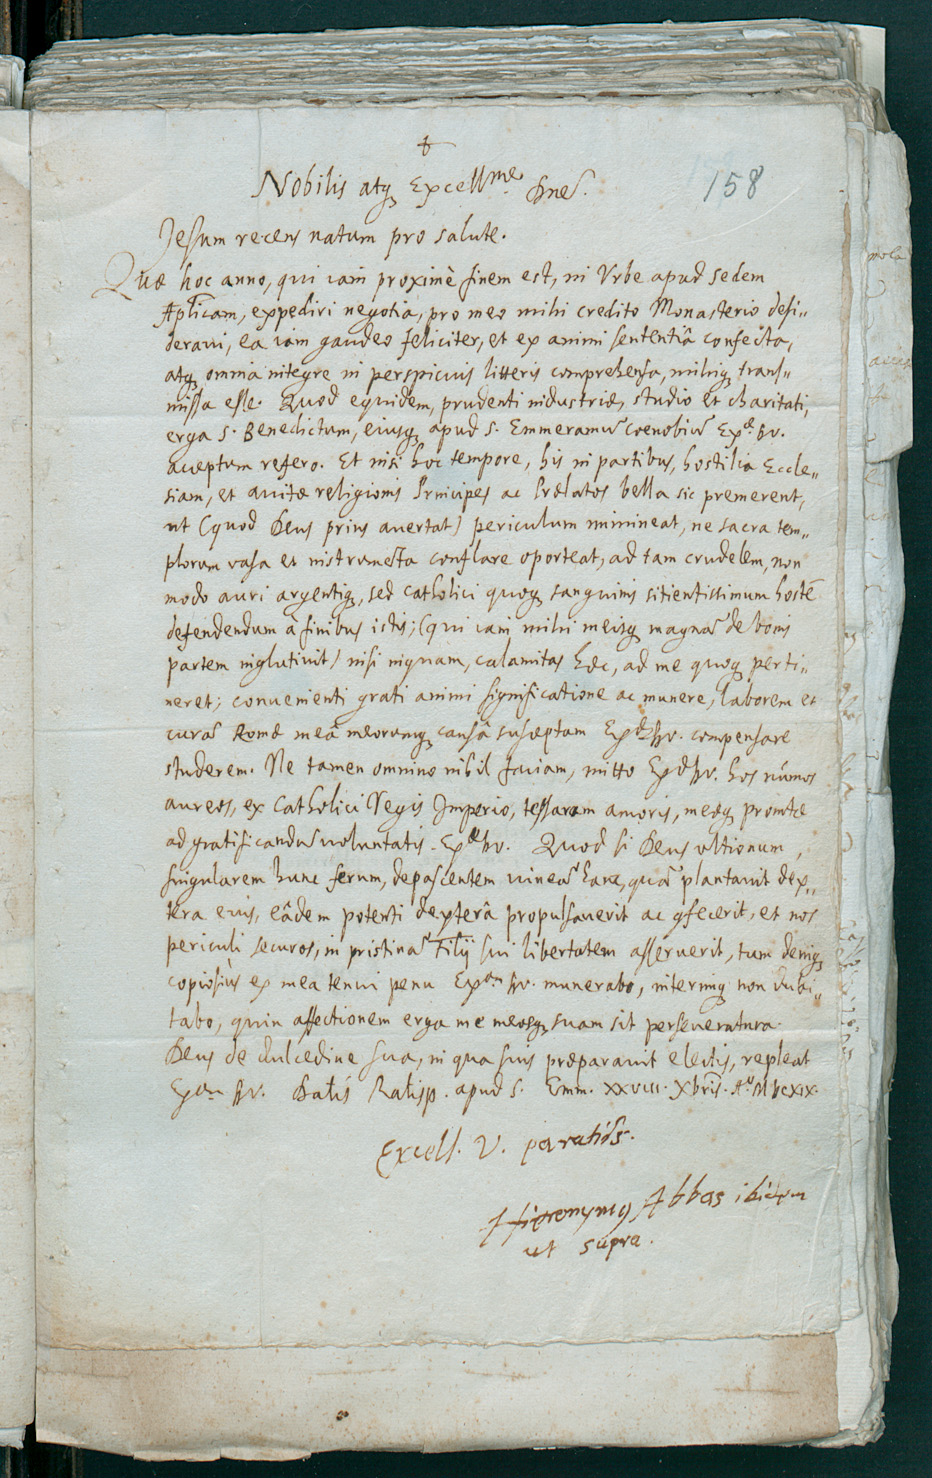 †
Nobilis atq, Excellme Dne.
158
Jesum recens natum pro salute.
Quæ hoc anno, qui iam proximè finem est, in Vrbe apud sedem
Aplicam, expediri negotia, pro meo mihi credito Monasterio desi-
deraui, ea iam gaudeo feliciter, et ex animi sententiâ confecta,
atq, omnia integre in perspicuis litteris comprehensa, mihiq, trans-
missa esse. Quod equidem, prudenti industriæ, studio et charitati,
erga S. Benedictum, eiusq, apud S. Emmeramū coenobiū Exæ Dv.
acceptum refero. Et nisi hoc tempore, his in partibus, hostilia Eccle-
siam, et auitæ religionis Principes ac Prælatos bella sic premerent,
ut (quod Deus prius auertat) periculum immineat, ne sacra tem-
plorum vasa et instrumenta conflare oporteat, ad tam crudelem, non
modo auri argentiq, sed catholici quoq, sanguinis sitientissimum hostē
defendendum à finibus istis; (qui iam mihi meisq, magnā de bonis
partem inglutiuit) nisi inquam, calamitas hæc, ad me quoq, perti-
neret; conuenienti grati animi significatione ac munere, laborem et
curā Romæ meâ meorumq, causâ susceptam Exæ Dv. compensare
studerem. Ne tamen omnino nihil faciam, mitto Exæ Dv. hos nūmos
aureos, ex Catholici Regis Imperio, tessaram amoris, meæq, promtæ
ad gratificandū voluntatis Exæ Dv. Quod si Deus ultionum,
singularem hunc ferum, depascentem vineā hanc, quā plantauit dex-
tera eius, eâdem potenti dexterâ propulsauerit ac cfecerit, et nos
periculi securos, in pristinā Filij sui libertatem asseruerit, tum deniq,
copiosiùs ex mea tenui penu Exam Dv. munerabo, interimq, non dubi-
tabo, quin affectionem erga me meosq, suam sit perseueratura.
Deus de dulcedine sua, in qua suis præparauit electis, repleat
Exam Dv. Datis Ratisp. apud S. Emm. XXVIII. Xbris. Ao MDCXIX.
Excell. V. paratiss.
Hieronymq Abbas ibidem
ut supra.